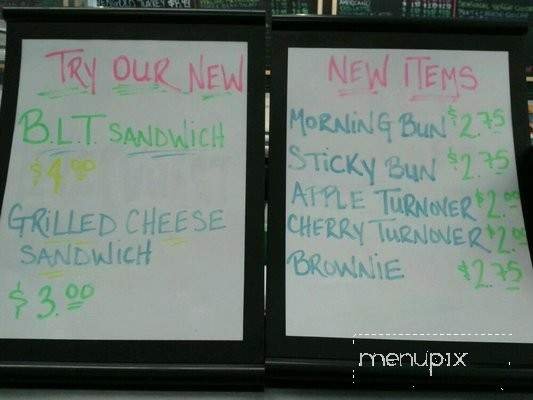 TRY OUR NEW
B.L.T. SANDWICH
$4.00
GRILLED CHEESE
SANDWICH
$3.00
NEW ITEMS
MORNING BUN $2.75
STICKY BUN $2.75
APPLE TURNOVER $2.00
CHERRY TURNOVER $2.00
BROWNIE $2.75
menupix